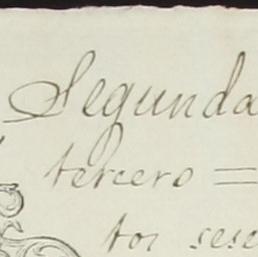 Segunda
tercero =
tos sese